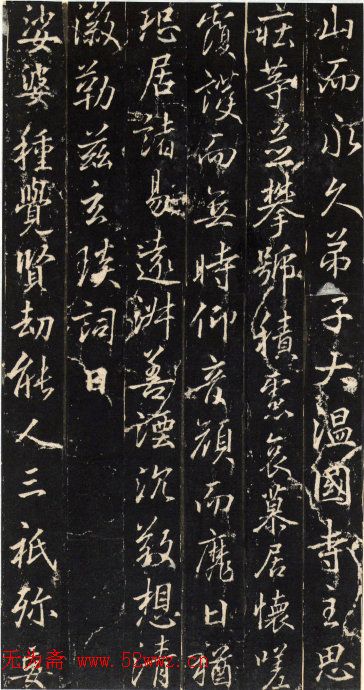 山而永久弟子大温國寺主思
莊等並攀號積慮哀慕居懷嗟
覆護而無時仰音顔而靡日猶
恐居諸易遠善湮沉敬想清
徽勒兹玄琰詞曰
娑婆種覺賢劫能人三祇弥
无为斋 www.52wwz.cn